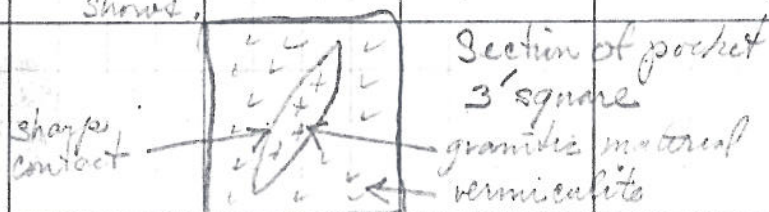 shows.
Section of pocket
3' square
sharp
contact
granitic material
vermiculite